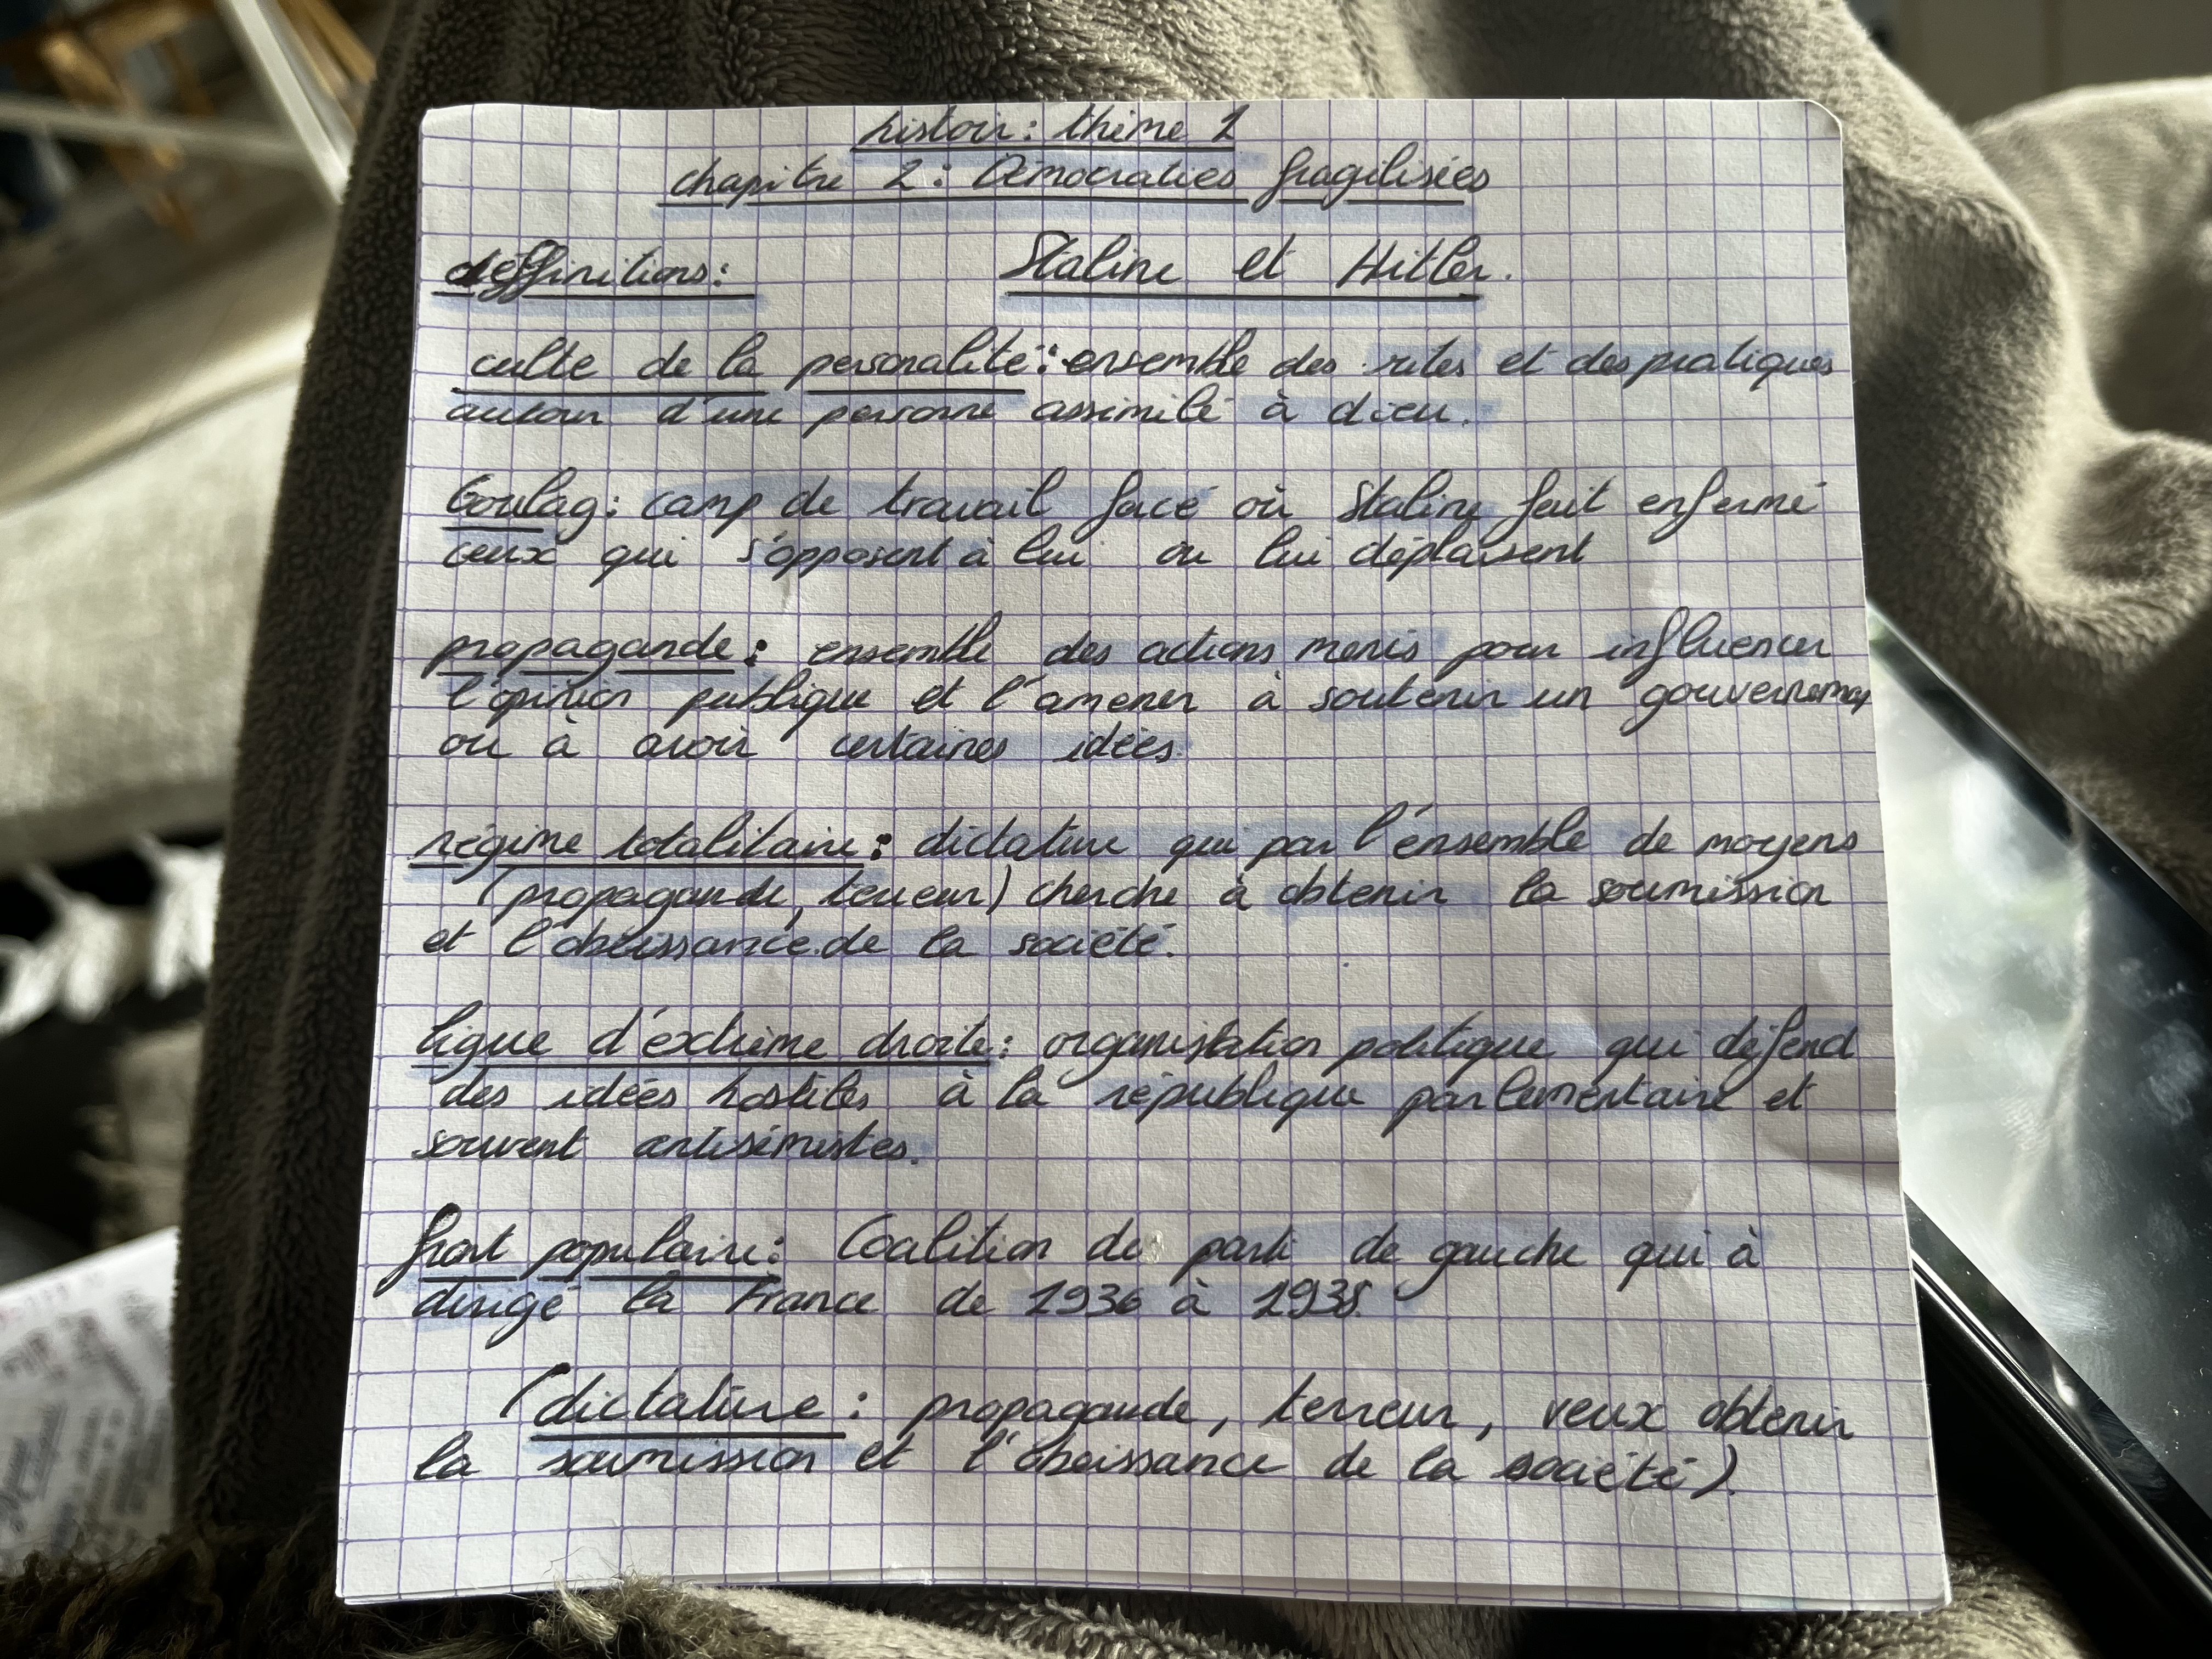 histoir: thème 1
chapitre 2: Démocraties fragilisées
déffinitions: Staline et Hitler.
culte de la personalité: ensemble des rites et des pratiques
autour d'une personne assimilé à dieu.
Goulag: camp de travail forcé où Staline fait enfermé
ceux qui s'opposent à lui ou lui déplaisent
propagande: ensemble des actions menés pour influencer
l'opinion publique et l'amener à soutenir un gouvernement
ou à avoir certaines idées.
régime totalitaire: dictature qui par l'énsemble de moyens
(propagande, terreur) cherche à obtenir la soumission
et l'obéissance de la société.
ligue d'éxtrème droite: organistation politique qui défend
des idéés hostiles à la république parlementaire et
souvent antisémistes.
front populaire: Coalition de parti de gauche qui à
dirigé la France de 1936 à 1938.
(dictature: propagande, terreur, veux obtenir
la soumission et l'obeissance de la société).